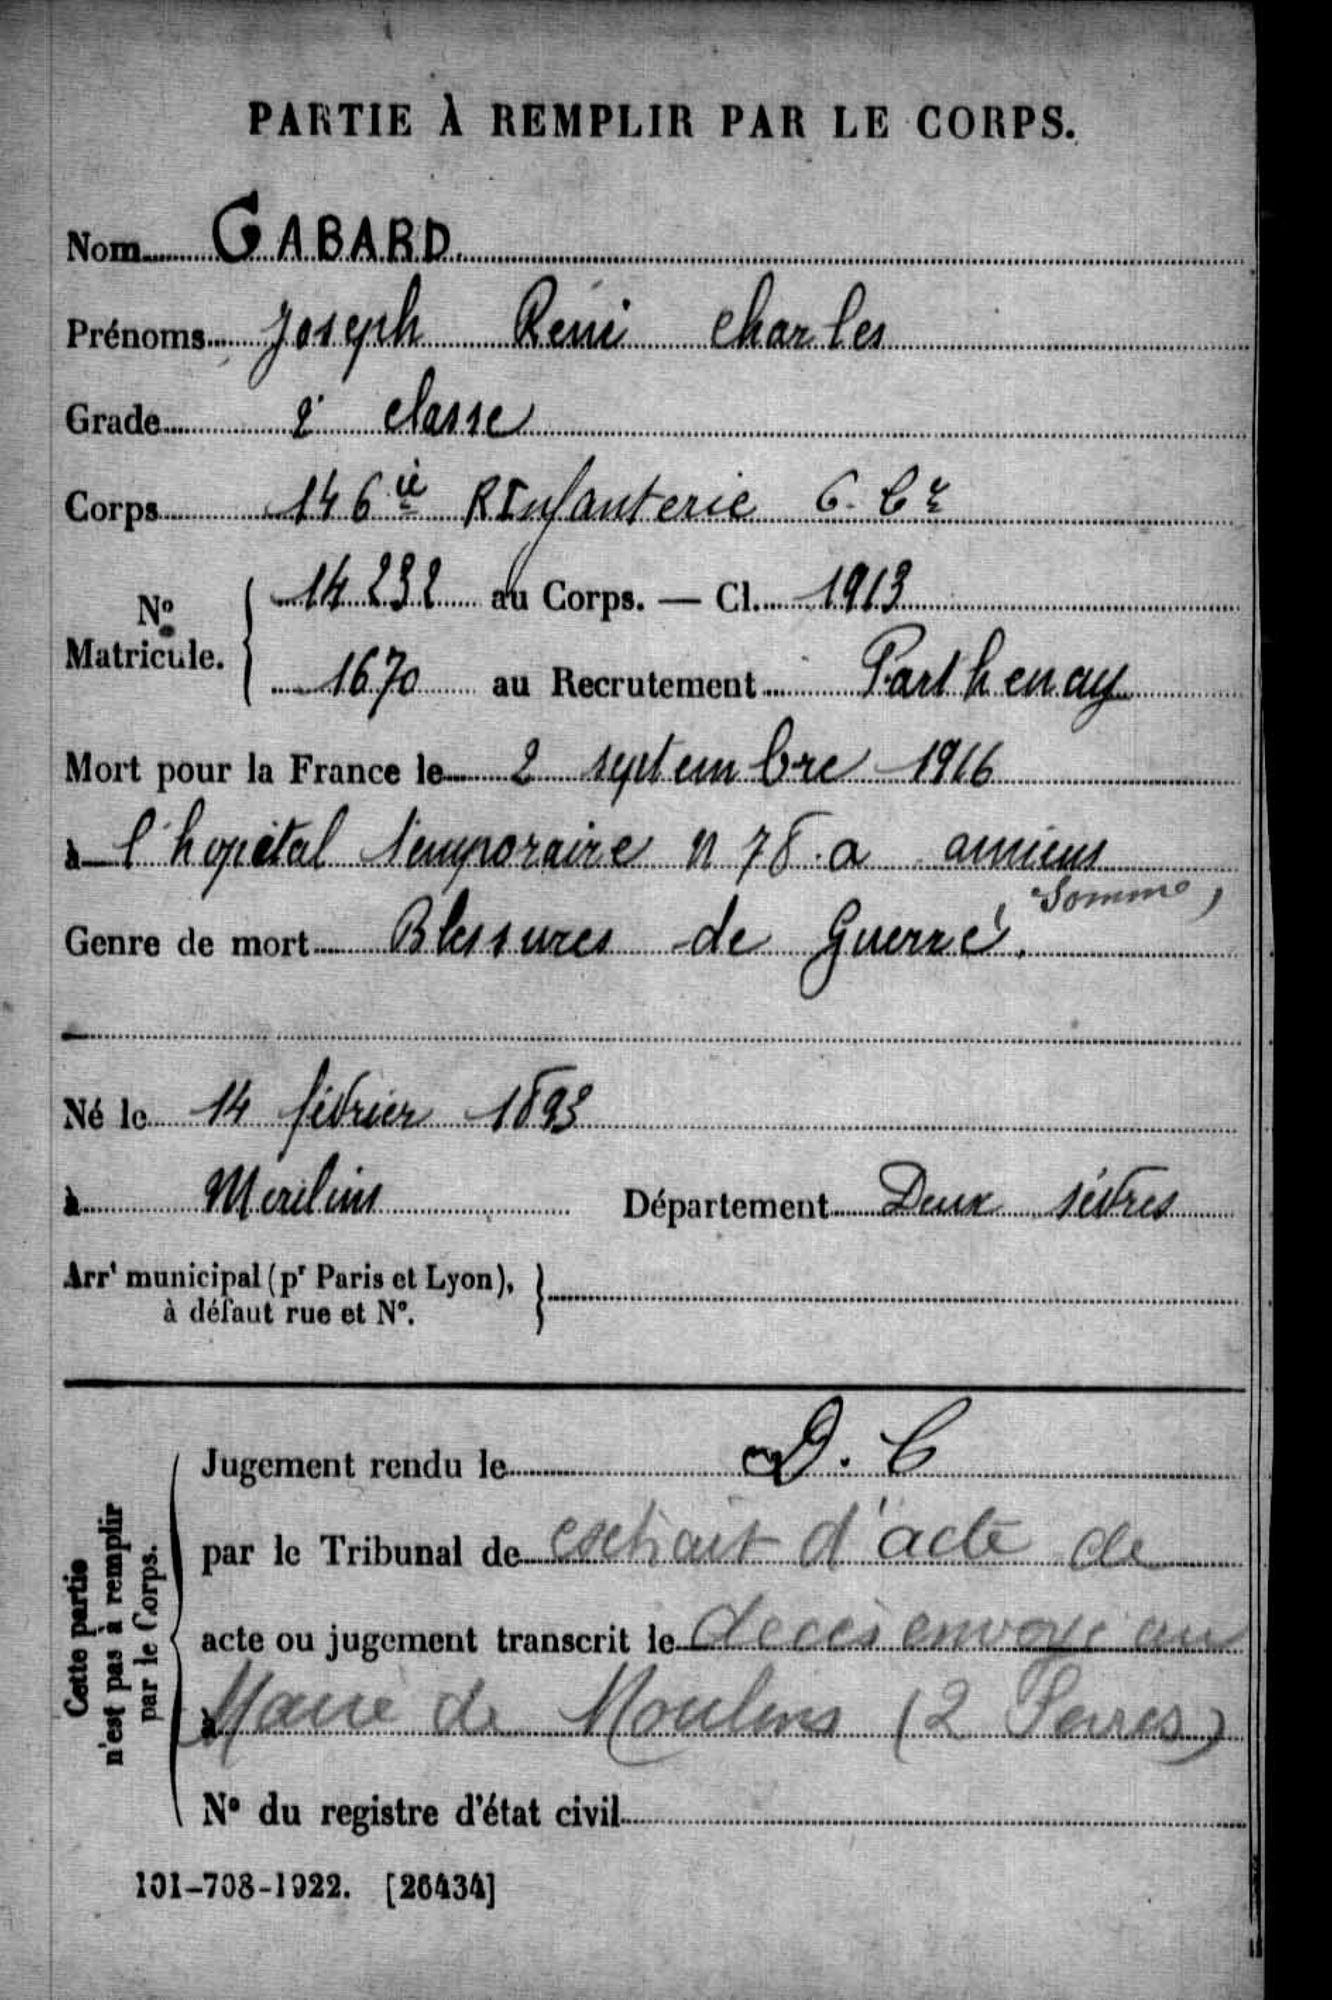 PARTIE À REMPLIR PAR LE CORPS.
Nom GABARD
Prénoms Joseph René Charles
Grade 2e classe
Corps 146ie RInfanterie 6. Cie
No Matricule. 14232 au Corps. — Cl. 1913
1670 au Recrutement Parthenay
Mort pour la France le 2 septembre 1916
à l'hopital temporaire n 78 a amiens
Somme
Genre de mort Blessures de Guerre.
Né le 14 février 1893
à Moulins Département Deux sèvres
Arrt municipal (pr Paris et Lyon),
à défaut rue et No.
Cette partie
n'est pas à remplir
par le Corps.
Jugement rendu le D. C
par le Tribunal de extrait d'acte de
acte ou jugement transcrit le decès envoyé au
à Maire de Moulins (2 Sevres)
No du registre d'état civil
101-708-1922. [26434]